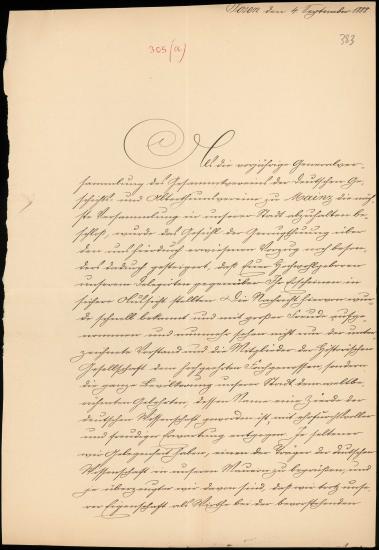 Posen den 4 September 1888.
383
305 (a)
Als die vorjährige Generalver-
sammlung des Gesammtvereins der deutschen Ge-
schichts- und Alterthumsvereine zu Mainz die näch-
ste Versammlung in unserer Stadt abzuhalten be-
schloß, wurde das Gefühl der Genugthuung über
den uns hierdurch erwiesenen Vorzug noch beson-
ders dadurch gesteigert, daß Euer Hochwohlgeboren
unserem Delegirten gegenüber Ihr Erscheinen in
sichere Aussicht stellten. Die Nachricht hiervon wur-
de schnell bekannt und mit großer Freude aufge-
nommen und nunmehr sehen nicht nur der unter-
zeichnete Vorstand und die Mitglieder der Historischen
Gesellschaft dem hochgeehrten Fachgenossen, sondern
die ganze Bevölkerung unserer Stadt dem weltbe-
rühmten Gelehrten, dessen Name eine Zierde der
deutschen Wissenschaft geworden ist, mit ehrfurchtsvoller
und freudiger Erwartung entgegen. Je seltener
wir Gelegenheit haben, einen der Träger der deutschen
Wissenschaft in unseren Mauern zu begrüßen, und
je überzeugter wir davon sind, daß wir trotz unse-
rer Eigenschaft als Wirthe bei der bevorstehenden